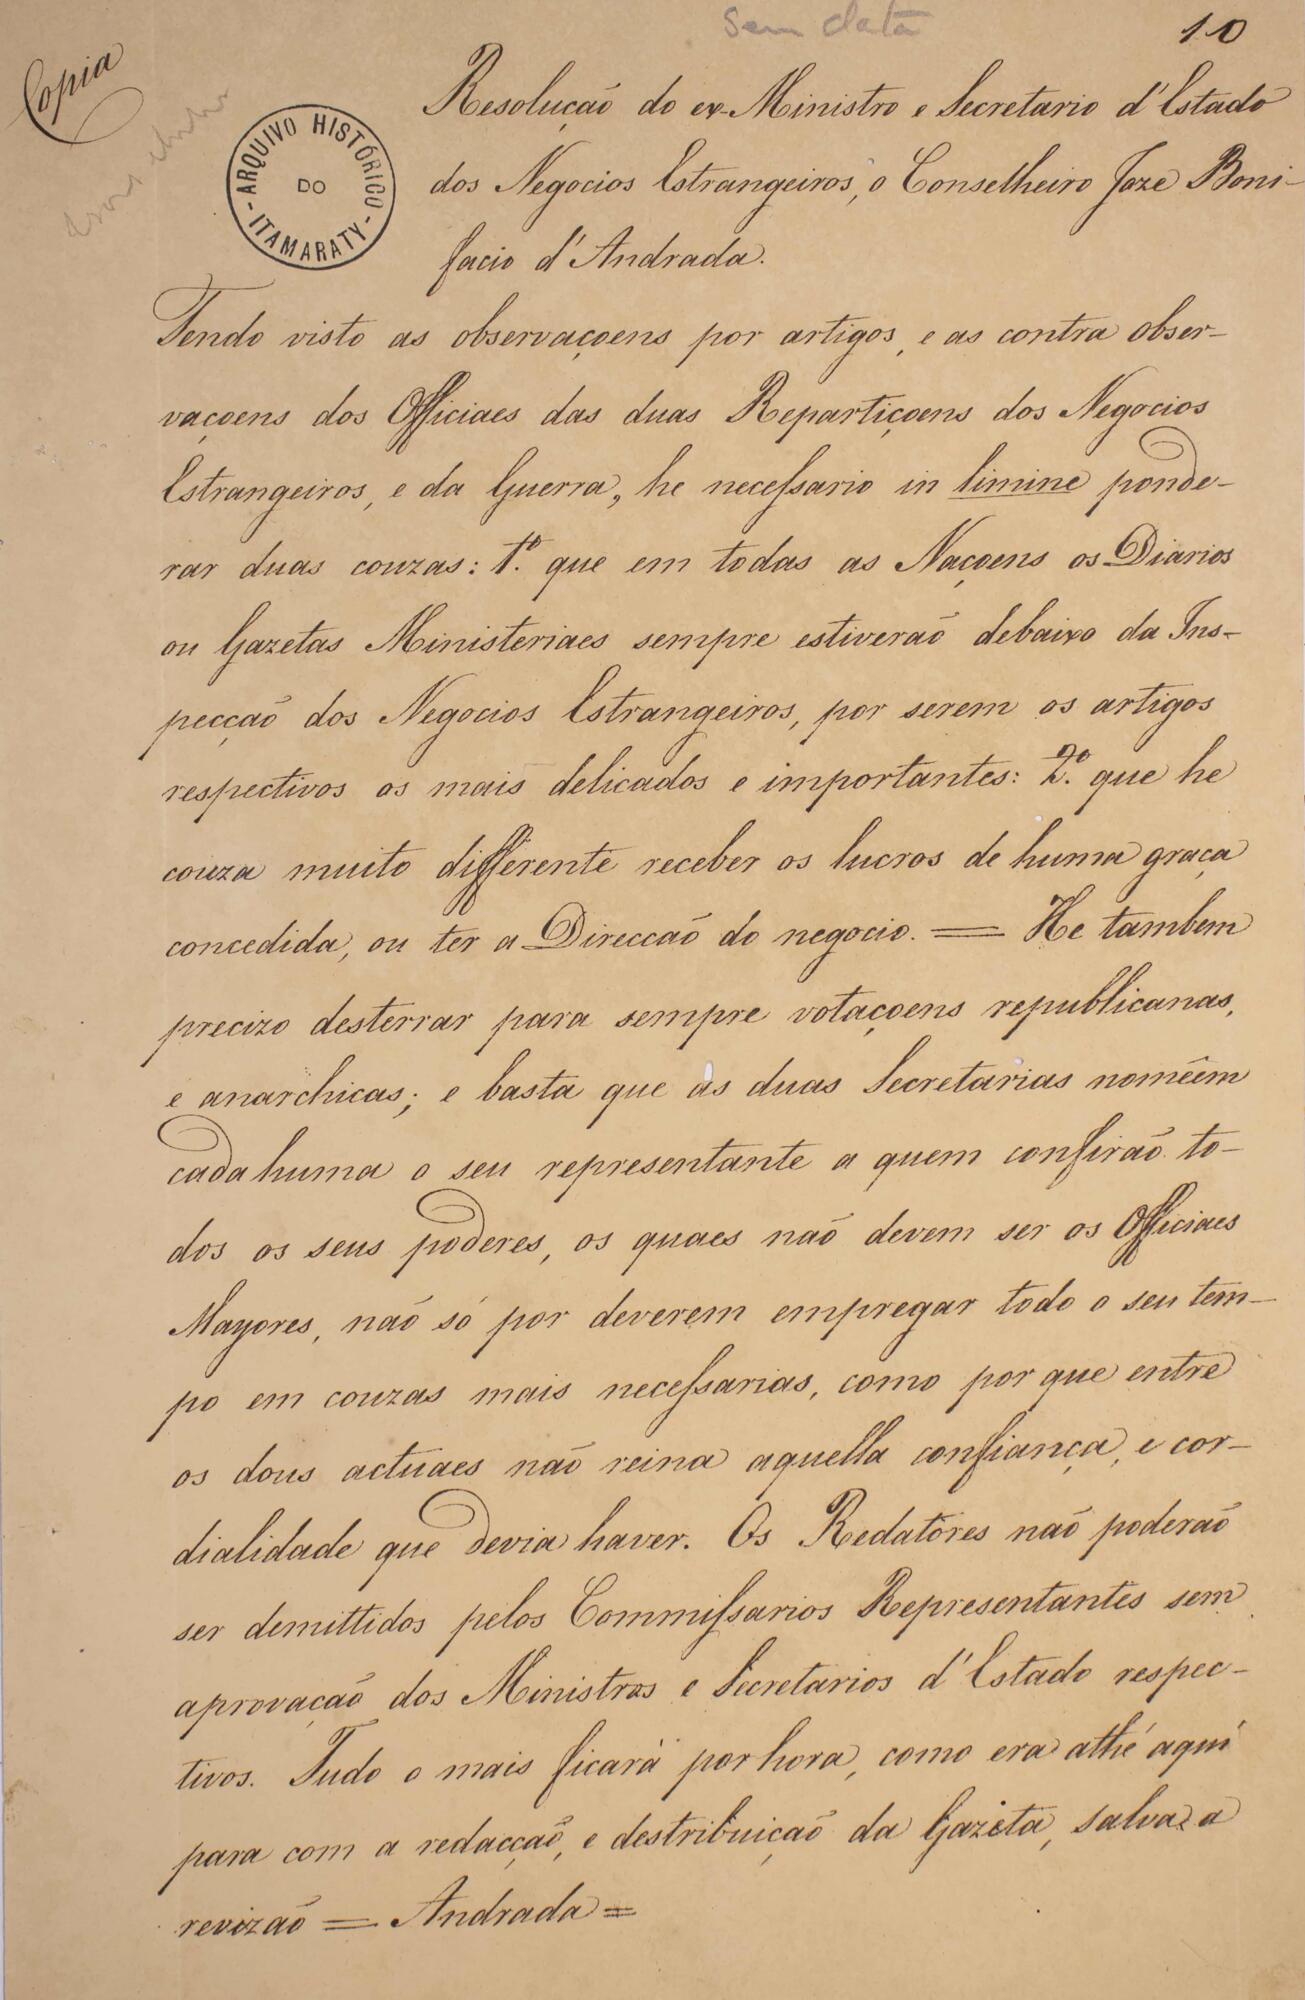 Sem data
10
Copia
ARQUIVO HISTÓRICO
DO
- ITAMARATY -
Resolução do ex-Ministro e Secretario d'Estado
dos Negocios Estrangeiros, o Conselheiro Joze Boni-
facio d'Andrada.
Tendo visto as observaçoens por artigos, e as contra obser-
vaçoens dos Officiaes das duas Repartiçoens dos Negocios
Estrangeiros, e da Guerra, he necessario in limine ponde-
rar duas couzas: 1º. que em todas as Naçoens os Diarios
ou Gazetas Ministeriaes sempre estiverão debaixo da Ins-
pecção dos Negocios Estrangeiros, por serem os artigos
respectivos os mais delicados e importantes: 2º. que he
couza muito differente receber os lucros de huma graça
concedida, ou ter a Direcção do negocio. = He tambem
precizo desterrar para sempre votaçoens republicanas,
e anarchicas; e basta que as duas Secretarias nomêem
cada huma o seu representante a quem confirão to-
dos os seus poderes, os quaes não devem ser os Officiaes
Mayores, não só por deverem empregar todo o seu tem-
po em couzas mais necessarias, como por que entre
os dous actuaes não reina aquella confiança, e cor-
dialidade que devia haver. Os Redatores não poderão
ser demittidos pelos Commissarios Representantes sem
aprovação dos Ministros e Secretarios d'Estado respec-
tivos. Tudo o mais ficará por hora, como era athé aqui
para com a redacção, e destribuição da Gazeta, salva a
revizão = Andrada =